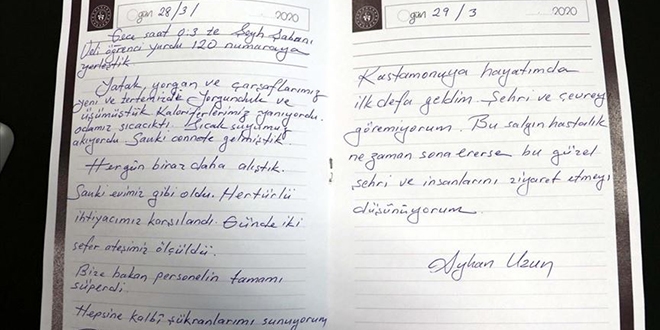 gün 28/3/ 2020
Gece saat 03 te Şeyh Şabanı
Veli öğrenci yurdu 120 numaraya
yerleştik
Yatak, yorgan ve çarşaflarımız
yeni ve tertemizdi. Yorgunduk ve
üşümüştük Kaloriferlerimiz yanıyordu.
odamız sıcacıktı. Sıcak suyumuz
akıyordu. Sanki cennete gelmiştik
Hergün biraz daha alıştık.
Sanki evimiz gibi oldu. Hertürlü
ihtiyacımız karşılandı. Günde iki
sefer ateşimiz ölçüldü.
Bize bakan personelin tamamı
süperdi.
Hepsine kalbî şükranlarımı sunuyorum
gün 29/3 2020
Kastamonuya hayatımda
ilk defa geldim. Şehri ve çevreyi
göremiyorum. Bu salgın hastalık
ne zaman sona ererse bu güzel
şehri ve insanlarını ziyaret etmeyi
düşünüyorum.
Ayhan Uzun